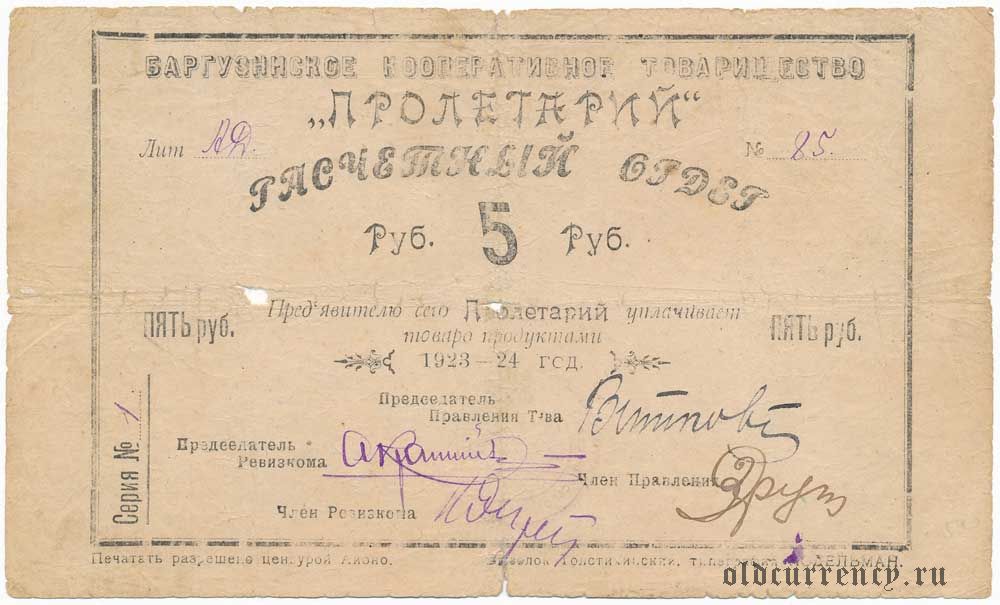 БАРГУЗИНСКОЕ КООПЕРАТИВНОЕ ТОВАРИЩЕСТВО
„ПРОЛЕТАРИЙ“
Лит АД. № 85.
РАСЧЕТНЫЙ ОРДЕР
Руб. 5 Руб.
Пред'явителю сего Пролетарий уплачивает
ПЯТЬ руб. ПЯТЬ руб.
товаро продуктами
1923-24 год.
Председатель
Правления Т-ва
Председатель
Ревизкома
Член Правления
Член Ревизкома
Серия № 1
Печатать разрешено цензурой Айоно. типография
oldcurrency.ru